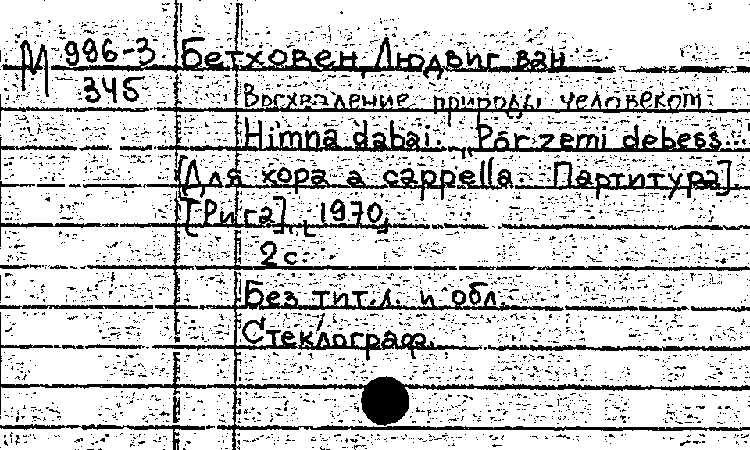 М 996-3 Бетховен, Людвиг ван
345
Восхваление природы человеком.
Himna dabai. „Pār zemi debess...“
[Для хора a cappella. Партитура].
[Рига], [1970].
2 с.
Без тит.л. и обл.
Стеклограф.